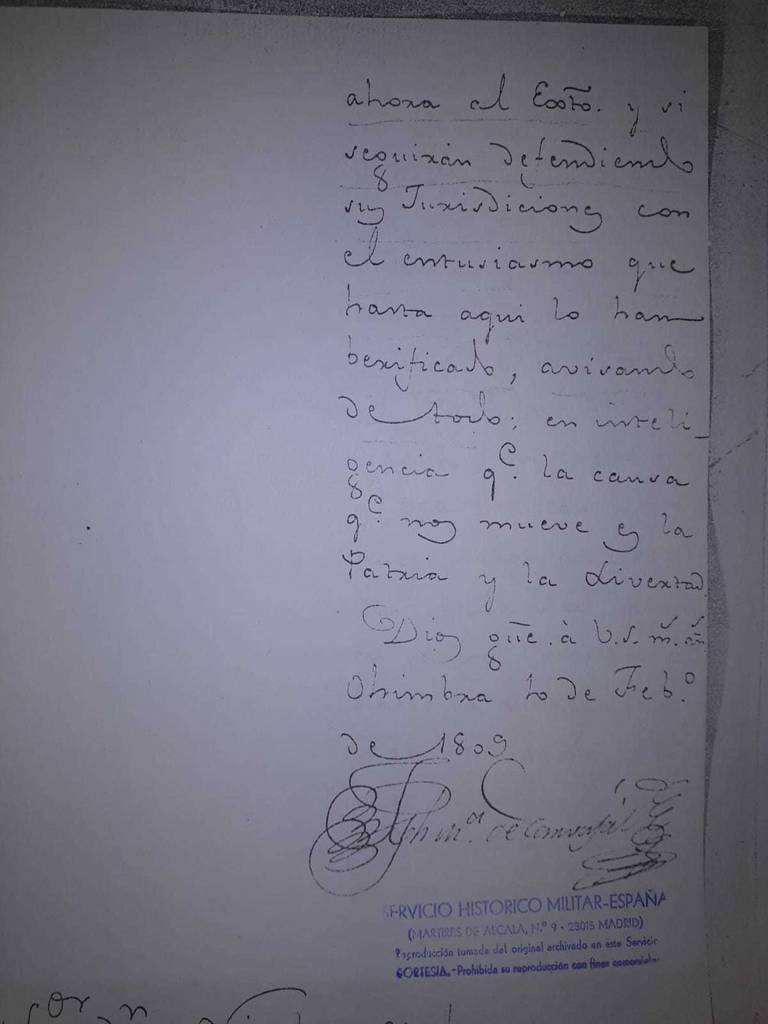 ahora al Exto. y si
seguirán defendiendo
sus Jurisdiciones con
el entusiasmo que
hasta aqui lo han
berificado, avivando
de todo: en inteli-
gencia qe. la causa
qe. nos mueve es la
Patria y la Livertad.
Dios gue. à V.S. ms. as.
Ohimbra 10 de Febo.
de 1809
Ma. de Carvajal
SERVICIO HISTORICO MILITAR-ESPAÑA
(MARTIRES DE ALCALA, N.º 9 - 28015 MADRID)
Reproducción tomada del original archivado en este Servicio
CORTESIA.-Prohibida su reproducción con fines comerciales